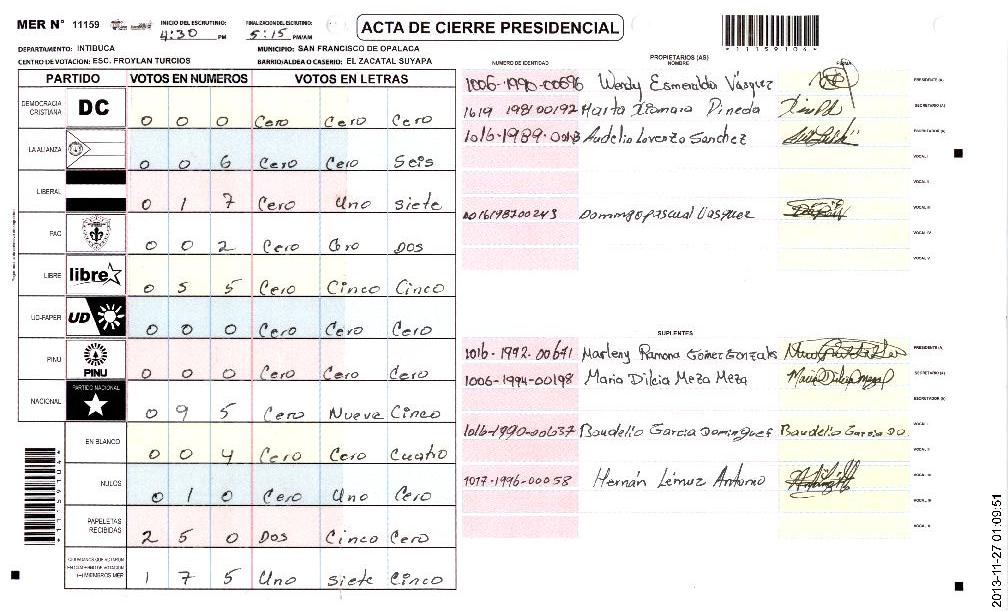 MER N° 11159 INICIO DEL ESCRUTINIO: 4:30 PM FINALIZACION DEL ESCRUTINIO: 5:15 PM/AM ACTA DE CIERRE PRESIDENCIAL
*11159104*
DEPARTAMENTO: INTIBUCA MUNICIPIO: SAN FRANCISCO DE OPALACA
CENTRO DE VOTACION: ESC. FROYLAN TURCIOS BARRIO/ALDEA O CASERIO: EL ZACATAL SUYAPA
PARTIDO VOTOS EN NUMEROS VOTOS EN LETRAS
DEMOCRACIA CRISTIANA DC 0 0 0 Cero Cero Cero
LA ALIANZA 0 0 6 Cero Cero Seis
LIBERAL 0 1 7 Cero Uno siete
PAC 0 0 2 Cero Cero Dos
LIBRE libre 0 5 5 Cero Cinco Cinco
UD-FAPER UD 0 0 0 Cero Cero Cero
PINU PINU 0 0 0 Cero Cero Cero
NACIONAL PARTIDO NACIONAL 0 9 5 Cero Nueve Cinco
EN BLANCO 0 0 4 Cero Cero Cuatro
NULOS 0 1 0 Cero Uno Cero
PAPELETAS RECIBIDAS 2 5 0 Dos Cinco Cero
CIUDADANOS QUE VOTARON EN CENTRO DE VOTACION (+) MIEMBROS MER 1 7 5 Uno siete Cinco
PROPIETARIOS (AS)
NUMERO DE IDENTIDAD NOMBRE FIRMA
1006-1990-00696 Wendy Esmeralda Vásquez PRESIDENTE (A)
1619 1981 00192 Marta Xiomara Pineda SECRETARIO (A)
1016-1989- Audelio Lorenzo Sanchez ESCRUTADOR (A)
VOCAL I
VOCAL II
Domingo pascual Vasquez VOCAL III
VOCAL IV
VOCAL V
SUPLENTES
1016-1992-00671 Marleny Ramona Gómez Gonzales PRESIDENTE (A)
1006-1994-00198 Maria Dilcia Meza Meza SECRETARIO (A)
ESCRUTADOR (A)
1016-1990-00637 Baudelio Garcia Dominguez Baudelio Garcia Do. VOCAL I
VOCAL II
1017-1996-00058 Hernán Lémuz Antonio VOCAL III
VOCAL IV
VOCAL V
2013-11-27 01:09:51